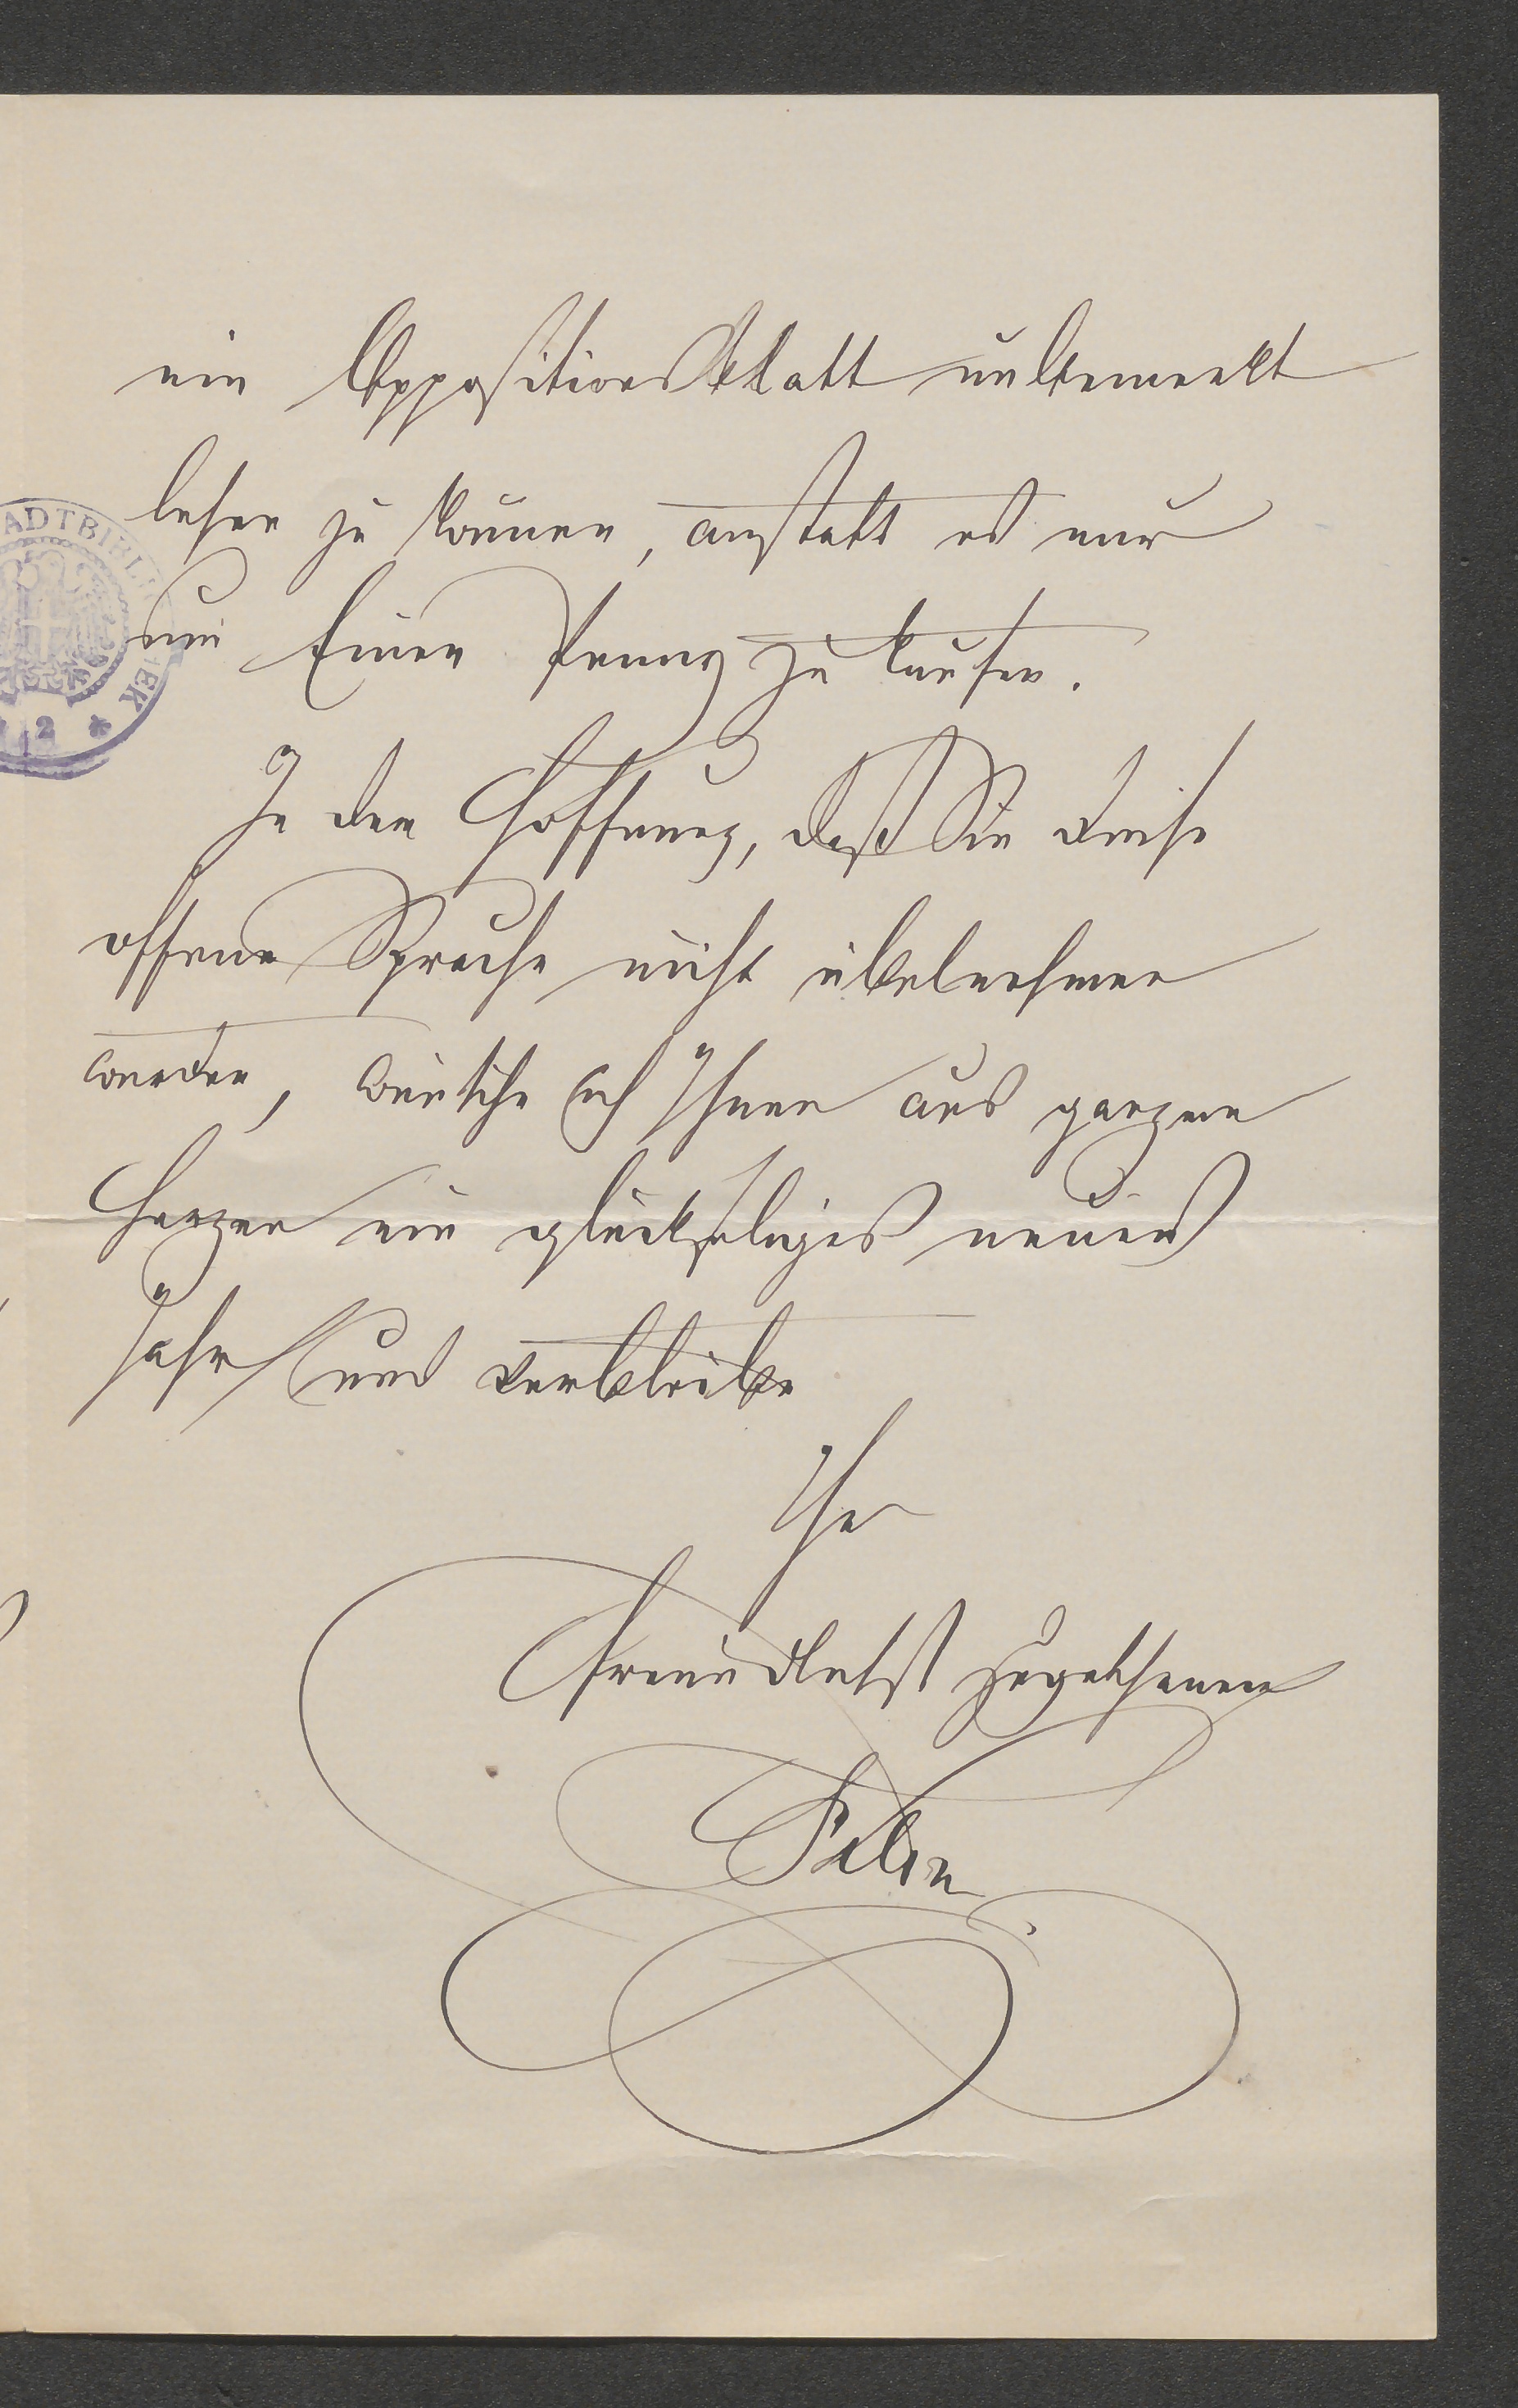 ein Oppositionsblatt unbemerkt
lesen zu können, anstatt es nur
um Einen Penny zu kaufen.
In der Hoffnung, daß Sie diese
offene Sprache nicht übelnehmen
werden, wünsche ich Ihnen aus ganzem
Herzen ein glückseliges neues
Jahr und verbleibe
Ihr
freundlichst zugethaner
ADTBIBL
HEK
2